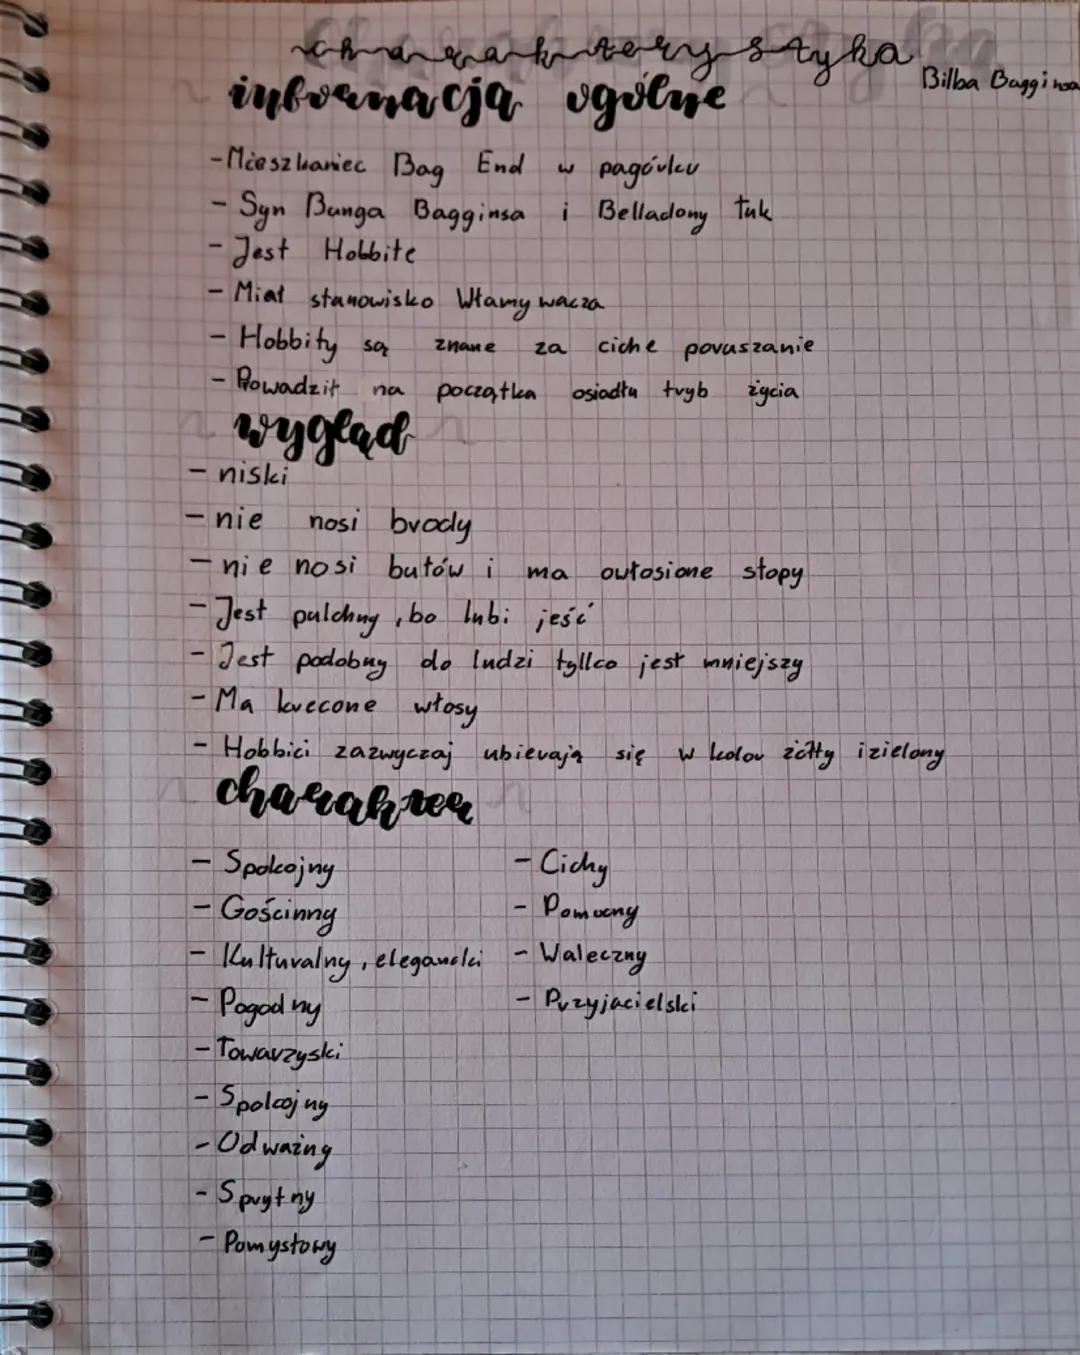 charakterystyka
Bilba Bagginsa
informacja ogólne
- Mieszkaniec Bag End w pagórku
- Syn Bunga Bagginsa i Belladony Tuk
- Jest Hobbite
- Miał stanowisko Włamywacza
- Hobbity są znane za ciche poruszanie
- Prowadził na początka osiadłu tryb życia
wygląd
- niski
- nie nosi brody
- nie nosi butów i ma owłosione stopy
- Jest pulchny, bo lubi jeść
- Jest podobny do ludzi tylko jest mniejszy
- Ma kręcone włosy
- Hobbici zazwyczaj ubierają się w kolor żółty i zielony
charakter
- Spokojny
- Gościnny
- Kulturalny, elegancki
- Pogodny
- Towarzyski
- Spokojny
- Odważny
- Sprytny
- Pomysłowy
- Cichy
- Pomocny
- Waleczny
- Przyjacielski